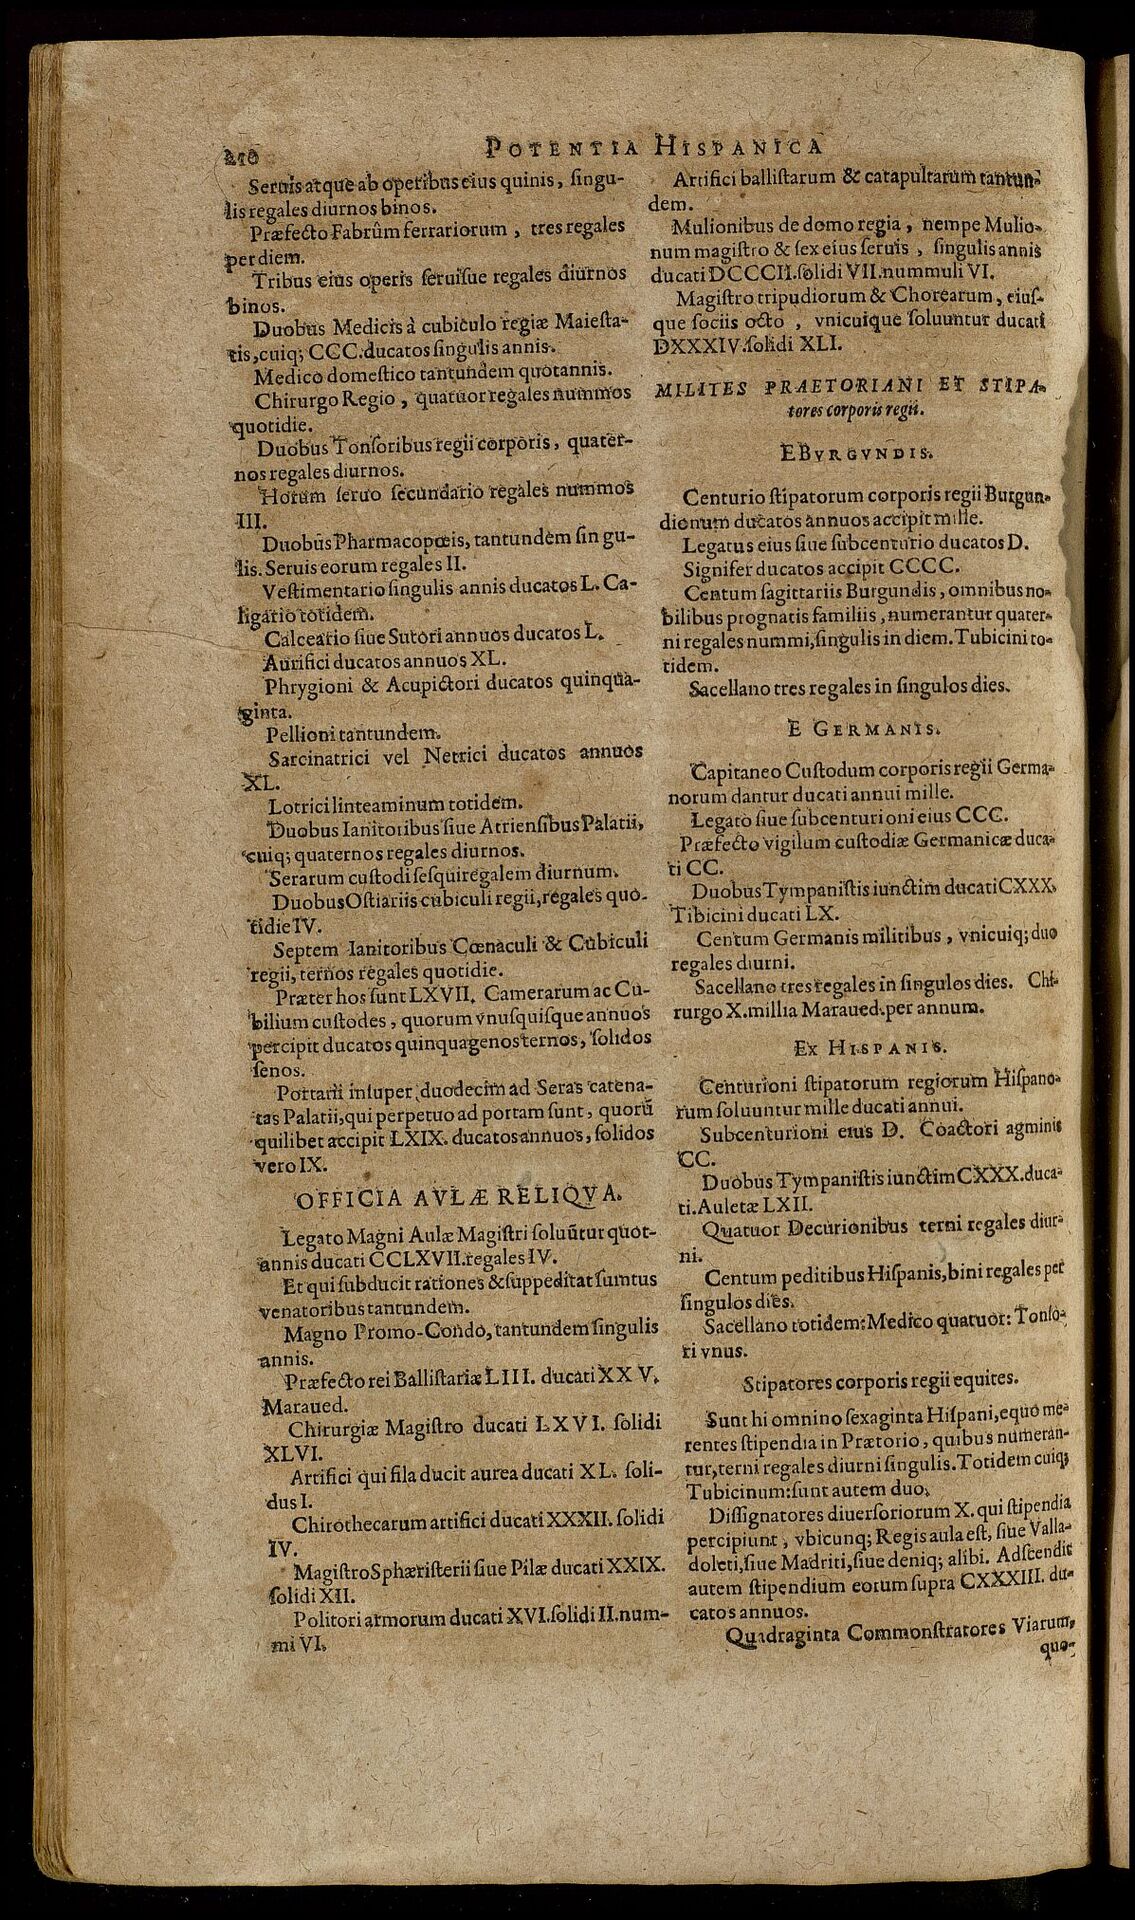 210
POTENTIA HISPANICA
Seruis atque ab operibus eius quinis, singu-
lis regales diurnos binos.
Præfecto Fabrûm ferrariorum, tres regales
per diem.
Tribus eius operis seruisue regales diurnos
binos.
Duobus Medicis à cubiculo regiæ Maiesta-
tis, cuiq; CCC. ducatos singulis annis.
Medico domestico tantundem quotannis.
Chirurgo Regio, quatuor regales nummos
quotidie.
Duobus Tonsoribus regii corporis, quater-
nos regales diurnos.
Horum seruo secundario regales nummos
III.
Duobus Pharmacopœis, tantundem singu-
lis. Seruis eorum regales II.
Vestimentario singulis annis ducatos L. Ca-
ligario totidem.
Calceario siue Sutori annuos ducatos L.
Aurifici ducatos annuos XL.
Phrygioni & Acupictori ducatos quinqua-
ginta.
Pellioni tantundem.
Sarcinatrici vel Netrici ducatos annuos
XL.
Lotrici linteaminum totidem.
Duobus Ianitoribus siue Atriensibus Palatii,
cuiq; quaternos regales diurnos.
Serarum custodi sesquiregalem diurnum.
Duobus Ostiariis cubiculi regii, regales quo-
tidie IV.
Septem Ianitoribus Cœnaculi & Cubiculi
regii, ternos regales quotidie.
Præter hos sunt LXVII. Camerarum ac Cu-
bilium custodes, quorum vnusquisque annuos
percipit ducatos quinquagenos ternos, solidos
senos.
Portarii insuper duodecim ad Seras catena-
tas Palatii, qui perpetuo ad portam sunt, quorū
quilibet accipit LXIX. ducatos annuos, solidos
vero IX.
OFFICIA AVLÆ RELIQVA.
Legato Magni Aulæ Magistri soluūtur quot-
annis ducati CCLXVII. regales IV.
Et qui subducit rationes & suppeditat sumtus
venatoribus tantundem.
Magno Promo-Condo, tantundem singulis
annis.
Præfecto rei Ballistariæ LIII. ducati XXV.
Maraued.
Chirurgiæ Magistro ducati LXVI. solidi
XLVI.
Artifici qui fila ducit aurea ducati XL. soli-
dus I.
Chirothecarum artifici ducati XXXII. solidi
IV.
Magistro Sphæristerii siue Pilæ ducati XXIX.
solidi XII.
Politori armorum ducati XVI. solidi II. num-
mi VI.
Artifici ballistarum & catapultarum tantun-
dem.
Mulionibus de domo regia, nempe Mulio-
num magistro & sex eius seruis, singulis annis
ducati DCCCII. solidi VII. nummuli VI.
Magistro tripudiorum & Chorearum, eius-
que sociis octo, vnicuique soluuntur ducati
DXXXIV. solidi XLI.
MILITES PRAETORIANI ET STIPA-
tores corporis regii.
E BVRGVNDIS.
Centurio stipatorum corporis regii Burgun-
dionum ducatos annuos accipit mille.
Legatus eius siue subcenturio ducatos D.
Signifer ducatos accipit CCCC.
Centum sagittariis Burgundis, omnibus no-
bilibus prognatis familiis, numerantur quater-
ni regales nummi, singulis in diem. Tubicini to-
tidem.
Sacellano tres regales in singulos dies.
E GERMANIS.
Capitaneo Custodum corporis regii Germa-
norum dantur ducati annui mille.
Legato siue subcenturioni eius CCC.
Præfecto vigilum custodiæ Germanicæ duca-
ti CC.
Duobus Tympanistis iunctim ducati CXXX.
Tibicini ducati LX.
Centum Germanis militibus, vnicuiq; duo
regales diurni.
Sacellano tres regales in singulos dies. Chi-
rurgo X. millia Maraued. per annum.
EX HISPANIS.
Centurioni stipatorum regiorum Hispano-
rum soluuntur mille ducati annui.
Subcenturioni eius D. Coactori agminis
CC.
Duobus Tympanistis iunctim CXXX. duca-
ti. Auletæ LXII.
Quatuor Decurionibus terni regales diur-
ni.
Centum peditibus Hispanis, bini regales per
singulos dies.
Sacellano totidem: Medico quatuor: Tonso-
ri vnus.
Stipatores corporis regii equites.
Sunt hi omnino sexaginta Hispani, equo me-
rentes stipendia in Prætorio, quibus numeran-
tur, terni regales diurni singulis. Totidem cuiq;
Tubicinum: sunt autem duo.
Dissignatores diuersoriorum X. qui stipendia
percipiunt, vbicunq; Regis aula est, siue Valla-
doleti, siue Madriti, siue deniq; alibi. Adscendit
autem stipendium eorum supra CXXXIII. du-
catos annuos.
Quadraginta Commonstratores Viarum,
quo-